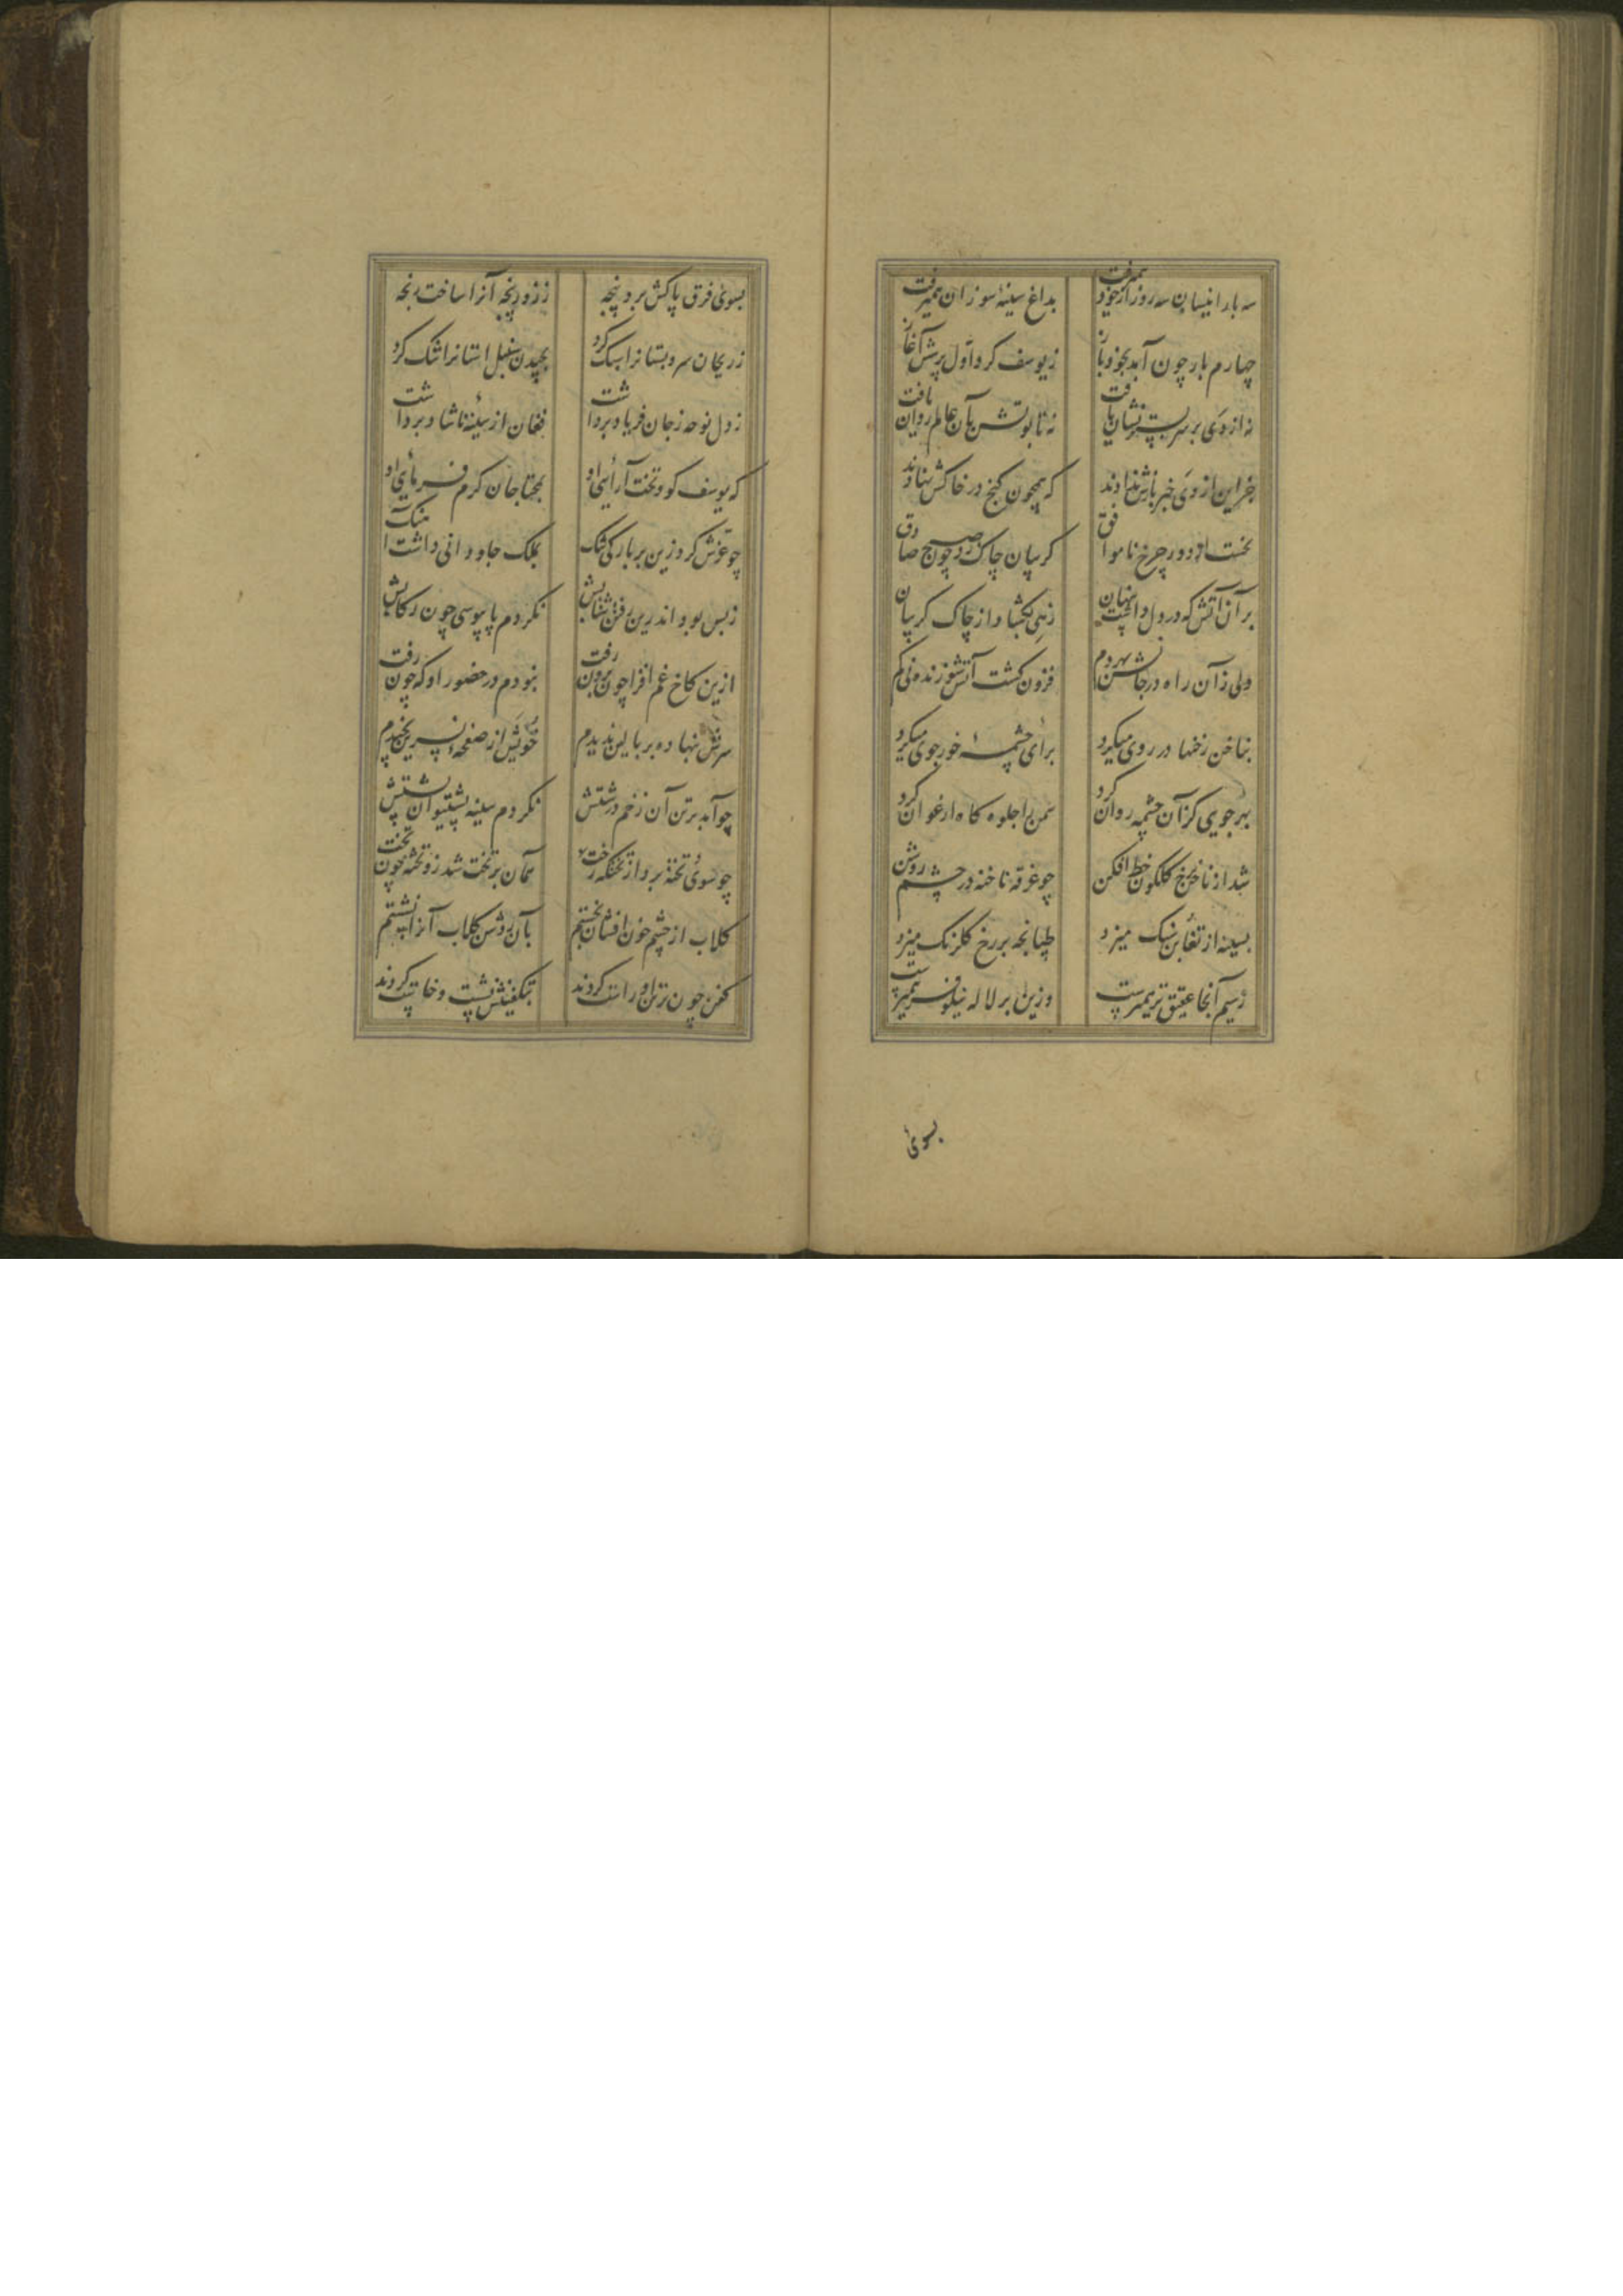 سه بار اینسان سه روز از خود همیرفت بداغ سینهٔ سوزان همیرفت
چهارم بار چون آمد بخود باز ز یوسف کرد اول پرسش آغاز
نه از وی بر سر بستر نشان یافت نه تابوتش بآن عالم روان یافت
جز این از وی خبر بازش ندادند که همچون کنج در خاکش نهادند
نخست از دور چرخ ناموافق کریبان چاک زد چون صبح صادق
بر آن آتش که در دل داشت پنهان رهی بکشاد از چاک کریبان
ولی زان راه در جانش بهر دم فزون کشت آتش سوزنده نی کم
بناخن رخنها در روی میکرد برای چشمهٔ خور جوی میکرد
بهر جویی کز آن چشمه روان کرد سمن را جلوه کاه ارغوان کرد
شد از ناخن رخ کلکون خط افکن چو غرقه ناخنه در چشم روشن
بسینه از تغابن سنک میزد طپانچه بر رخ کلرنک میزد
ز سیم آنجا عقیق تر همیرست وزین بر لاله نیلوفر همیرست
بسوی
بسوی فرق پاکش برد پنجه ز زور پنجه آنرا ساخت رنجه
ز ریحان سرو بستانرا سبک کرد بچیدن سنبلستانرا تنک کرد
ز دل نوحه ز جان فریاد برداشت فغان از سینهٔ ناشاد برداشت
که یوسف کو و تخت آرایی او بمحتاجان کرم فرمایی او
چو عزمش کرد زین بر بارکی تنک بملک جاودانی داشت آهنک
ز بس بود اندرین رفتن شتابش نکردم پای بوسی چون رکابش
ازین کاخ غم افزا چون برون رفت نبودم در حضور او که چون رفت
سرش بنهاده بر بالین ندیدم خویش از صفحهٔ نسرین نچیدم
چو آمد بر تن آن زخم درشتش نکردم سینه پشتیوان پشتش
چو سوی تخته برد از تختکه رخت همان بر تخت شد زو تخته چون تخت
کلاب از چشم خون افشان نجستم بآن روشن کلاب آنرا نشستم
کفن چون بر تن او راست کردند بتکفینش نشست و خاست کردند